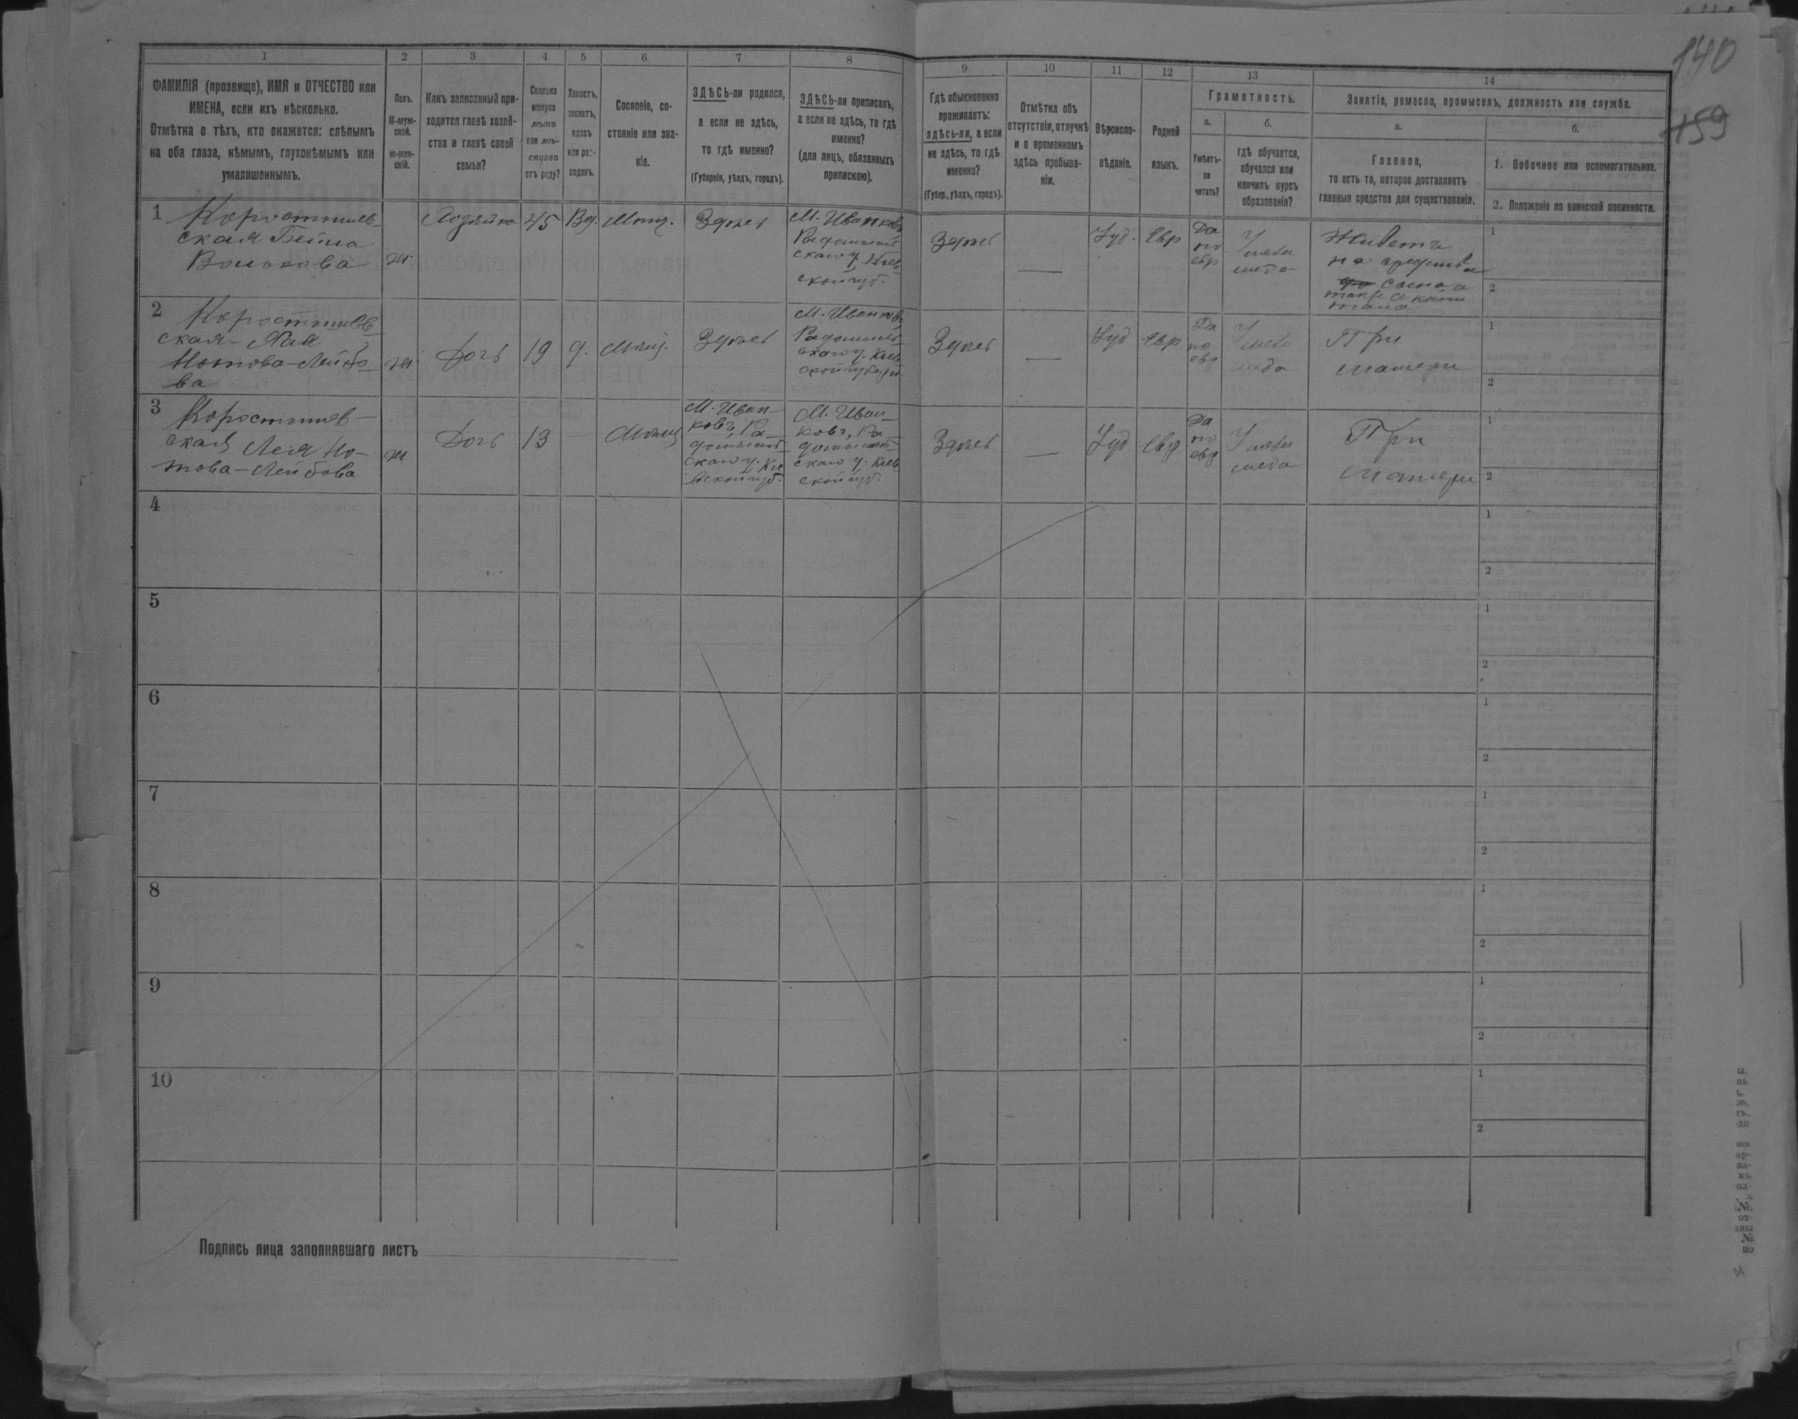 140
159
1
2
3
4
5
6
7
8
9
10
11
12
13
14
ФАМИЛІЯ (прозвище), ИМЯ и ОТЧЕСТВО или
ИМЕНА, если ихъ нѣсколько.
Отмѣтка о тѣхъ, кто окажется: слѣпымъ
на оба глаза, нѣмымъ, глухонѣмымъ или
умалишеннымъ.
Полъ.
М-муж-
ской.
ж-жен-
скій.
Какъ записанный при-
ходится главѣ хозяй-
ства и главѣ своей
семьи?
Сколько
минуло
лѣтъ
или мѣ-
сяцевъ
отъ роду?
Холостъ,
женатъ,
вдовъ
или раз-
веденъ.
Сословіе, со-
стояніе или зва-
ніе.
ЗДѢСЬ-ли родился,
а если не здѣсь,
то гдѣ именно?
(Губернія, уѣздъ, городъ).
ЗДѢСЬ-ли приписанъ,
а если не здѣсь, то гдѣ
именно?
(для лицъ, обязанныхъ
припискою).
Гдѣ обыкновенно
проживаетъ:
здѣсь-ли, а если
не здѣсь, то гдѣ
именно?
(Губер., уѣздъ, городъ).
Отмѣтка объ
отсутствіи, отлучкѣ
и о временномъ
здѣсь пребыва-
ніи.
Вѣроиспо-
вѣданіе.
Родной
языкъ.
Грамотность.
а.
б.
Умѣетъ-
ли
читать?
гдѣ обучается,
обучался или
кончилъ курсъ
образованія?
Занятіе, ремесло, промыселъ, должность или служба.
а.
б.
Главное,
то есть то, которое доставляетъ
главныя средства для существованія.
1. Побочное или вспомогательное.
2. Положеніе по воинской повинности.
1
Коростышев-
ская
Волькова
ж
Хозяйка
45
Вд.
Мѣщ.
Здѣсь
М. Иванковъ
Радомысль
скаго у. Кіев
ской губ.
Здѣсь
—
Іуд.
Евр
Да
по
евр
У меламеда
Живетъ
на средства
сына а
также
1
2
2
Коростышев-
ская
Нотова-Лейбо-
ва
ж
Дочь
19
д.
Мѣщ.
Здѣсь
М. Иванковъ
Радомысль
скаго у. Кіев
ской губерн
Здѣсь
—
Іуд
Евр
Да
по
евр
У мела
меда
При
матери
1
2
3
Коростышев-
ская Лея Но-
това-Лейбова
ж
Дочь
13
Мѣщ
М. Иван-
ковъ, Ра-
домысль
скаго у. Кі
евской губ.
М. Иван-
ковъ, Ра-
домысль
скаго у. Кіев
ской губ.
Здѣсь
—
Іуд
Евр
Да
по
евр
У мела
меда
При
матери
1
2
4
1
2
5
1
2
6
1
2
7
1
2
8
1
2
9
1
2
10
1
2
Подпись лица заполнявшаго листъ